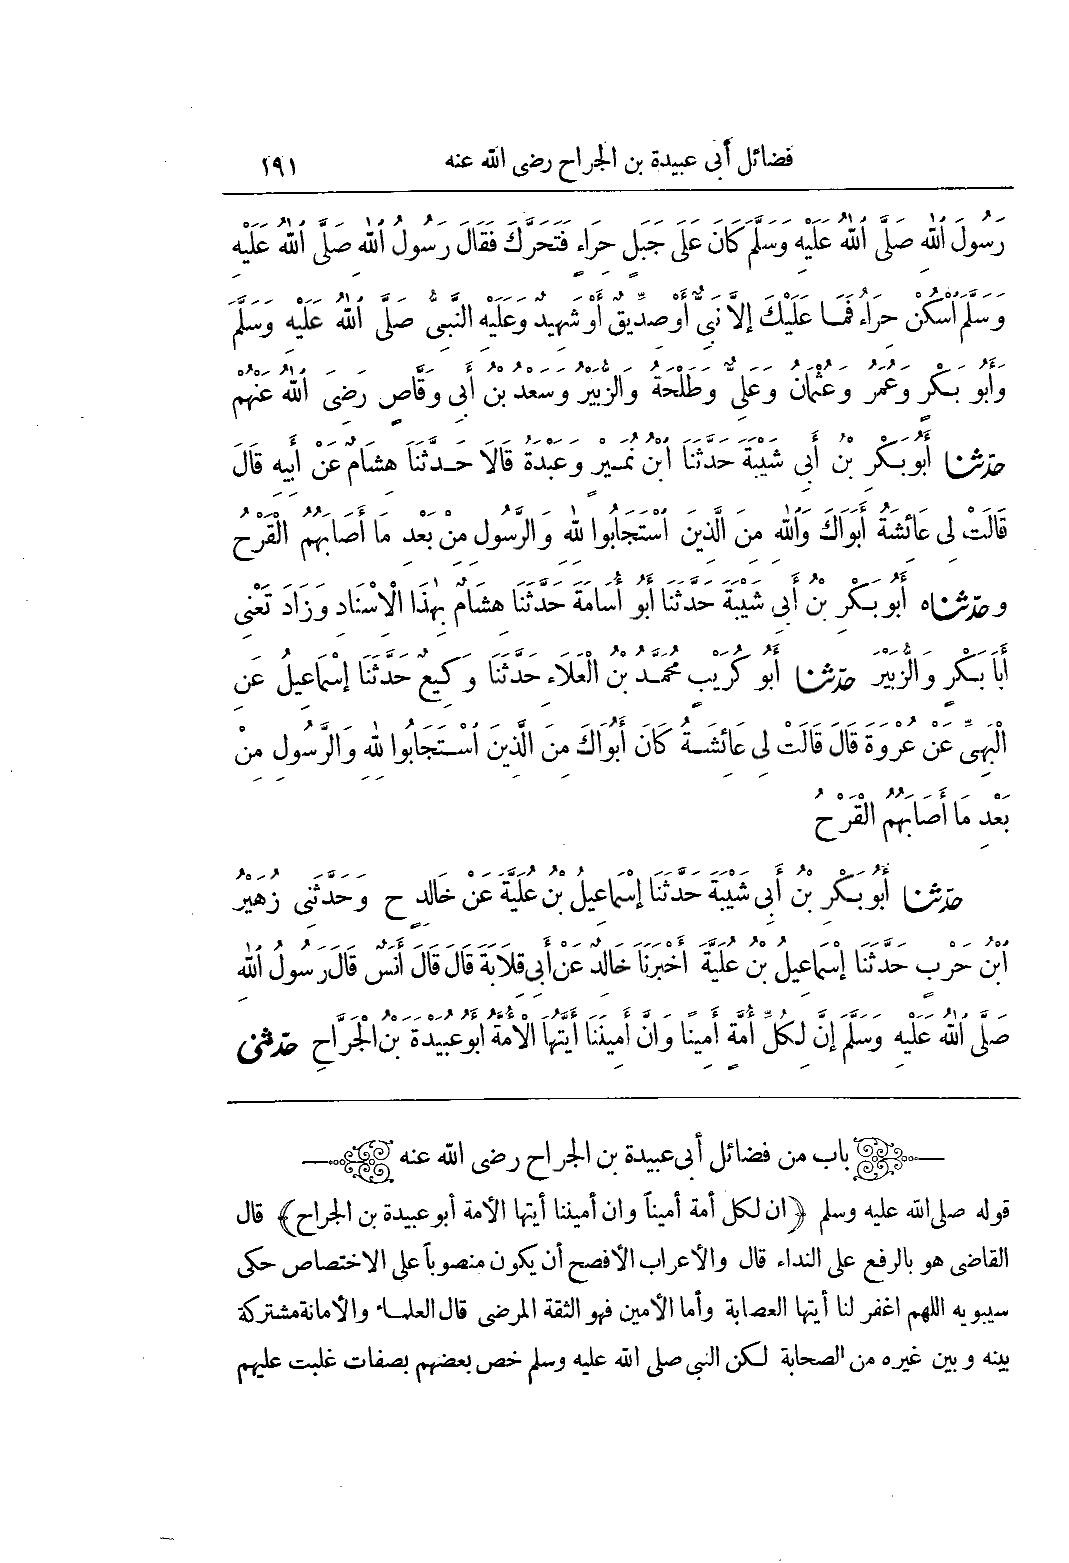 فضائل أبى عبيدة بن الجراح رضى الله عنه ١٩١
رَسُولَ اللهِ صَلَّى اللهُ عَلَيْهِ وَسَلَّمَ كَانَ عَلَى جَبَلِ حِرَاءٍ فَتَحَرَّكَ فَقَالَ رَسُولُ اللهِ صَلَّى اللهُ عَلَيْهِ
وَسَلَّمَ اسْكُنْ حِرَاءُ فَمَا عَلَيْكَ إِلَّا نَبِىٌّ أَوْ صِدِّيقٌ أَوْ شَهِيدٌ وَعَلَيْهِ النَّبِىُّ صَلَّى اللهُ عَلَيْهِ وَسَلَّمَ
وَأَبُو بَكْرٍ وَعُمَرُ وَعُثْمَانُ وَعَلِىٌّ وَطَلْحَةُ وَالزُّبَيْرُ وَسَعْدُ بْنُ أَبِى وَقَّاصٍ رَضِىَ اللهُ عَنْهُمْ
حدّثنا أَبُو بَكْرِ بْنُ أَبِى شَيْبَةَ حَدَّثَنَا ابْنُ نُمَيْرٍ وَعَبْدَةُ قَالَا حَدَّثَنَا هِشَامٌ عَنْ أَبِيهِ قَالَ
قَالَتْ لِى عَائِشَةُ أَبَوَاكَ وَاللهِ مِنَ الَّذِينَ اسْتَجَابُوا لِلهِ وَالرَّسُولِ مِنْ بَعْدِ مَا أَصَابَهُمُ الْقَرْحُ
و حدّثناه أَبُو بَكْرِ بْنُ أَبِى شَيْبَةَ حَدَّثَنَا أَبُو أُسَامَةَ حَدَّثَنَا هِشَامٌ بِهٰذَا الْاسْنَادِ وَزَادَ تَعْنِى
أَبَا بَكْرٍ وَالزُّبَيْرَ حدّثنا أَبُو كُرَيْبٍ مُحَمَّدُ بْنُ الْعَلَاءِ حَدَّثَنَا وَكِيعٌ حَدَّثَنَا إِسْمَاعِيلُ عَنِ
الْبَهِىِّ عَنْ عُرْوَةَ قَالَ قَالَتْ لِى عَائِشَةُ كَانَ أَبَوَاكَ مِنَ الَّذِينَ اسْتَجَابُوا لِلهِ وَالرَّسُولِ مِنْ
بَعْدِ مَا أَصَابَهُمُ الْقَرْحُ
حدّثنا أَبُو بَكْرِ بْنُ أَبِى شَيْبَةَ حَدَّثَنَا إِسْمَاعِيلُ بْنُ عُلَيَّةَ عَنْ خَالِدٍ ح وَحَدَّثَنِى زُهَيْرُ
ابْنُ حَرْبٍ حَدَّثَنَا إِسْمَاعِيلُ بْنُ عُلَيَّةَ أَخْبَرَنَا خَالِدٌ عَنْ أَبِى قِلَابَةَ قَالَ قَالَ أَنَسٌ قَالَ رَسُولُ اللهِ
صَلَّى اللهُ عَلَيْهِ وَسَلَّمَ إِنَّ لِكُلِّ أُمَّةٍ أَمِينًا وَانَّ أَمِينَنَا أَيَّتُهَا الْأُمَّةُ أَبُو عُبَيْدَةَ بْنُ الْجَرَّاحِ حدّثنى
باب من فضائل أبى عبيدة بن الجراح رضى الله عنه
قوله صلى الله عليه وسلم ﴿ان لكل أمة أميناً وان أميننا أيتها الأمة أبو عبيدة بن الجراح﴾ قال
القاضى هو بالرفع على النداء قال والأعراب الأفصح أن يكون منصوباً على الاختصاص حكى
سيبويه اللهم اغفر لنا أيتها العصابة وأما الأمين فهو الثقة المرضى قال العلماء والأمانة مشتركة
بينه وبين غيره من الصحابة لكن النبي صلى الله عليه وسلم خص بعضهم بصفات غلبت عليهم